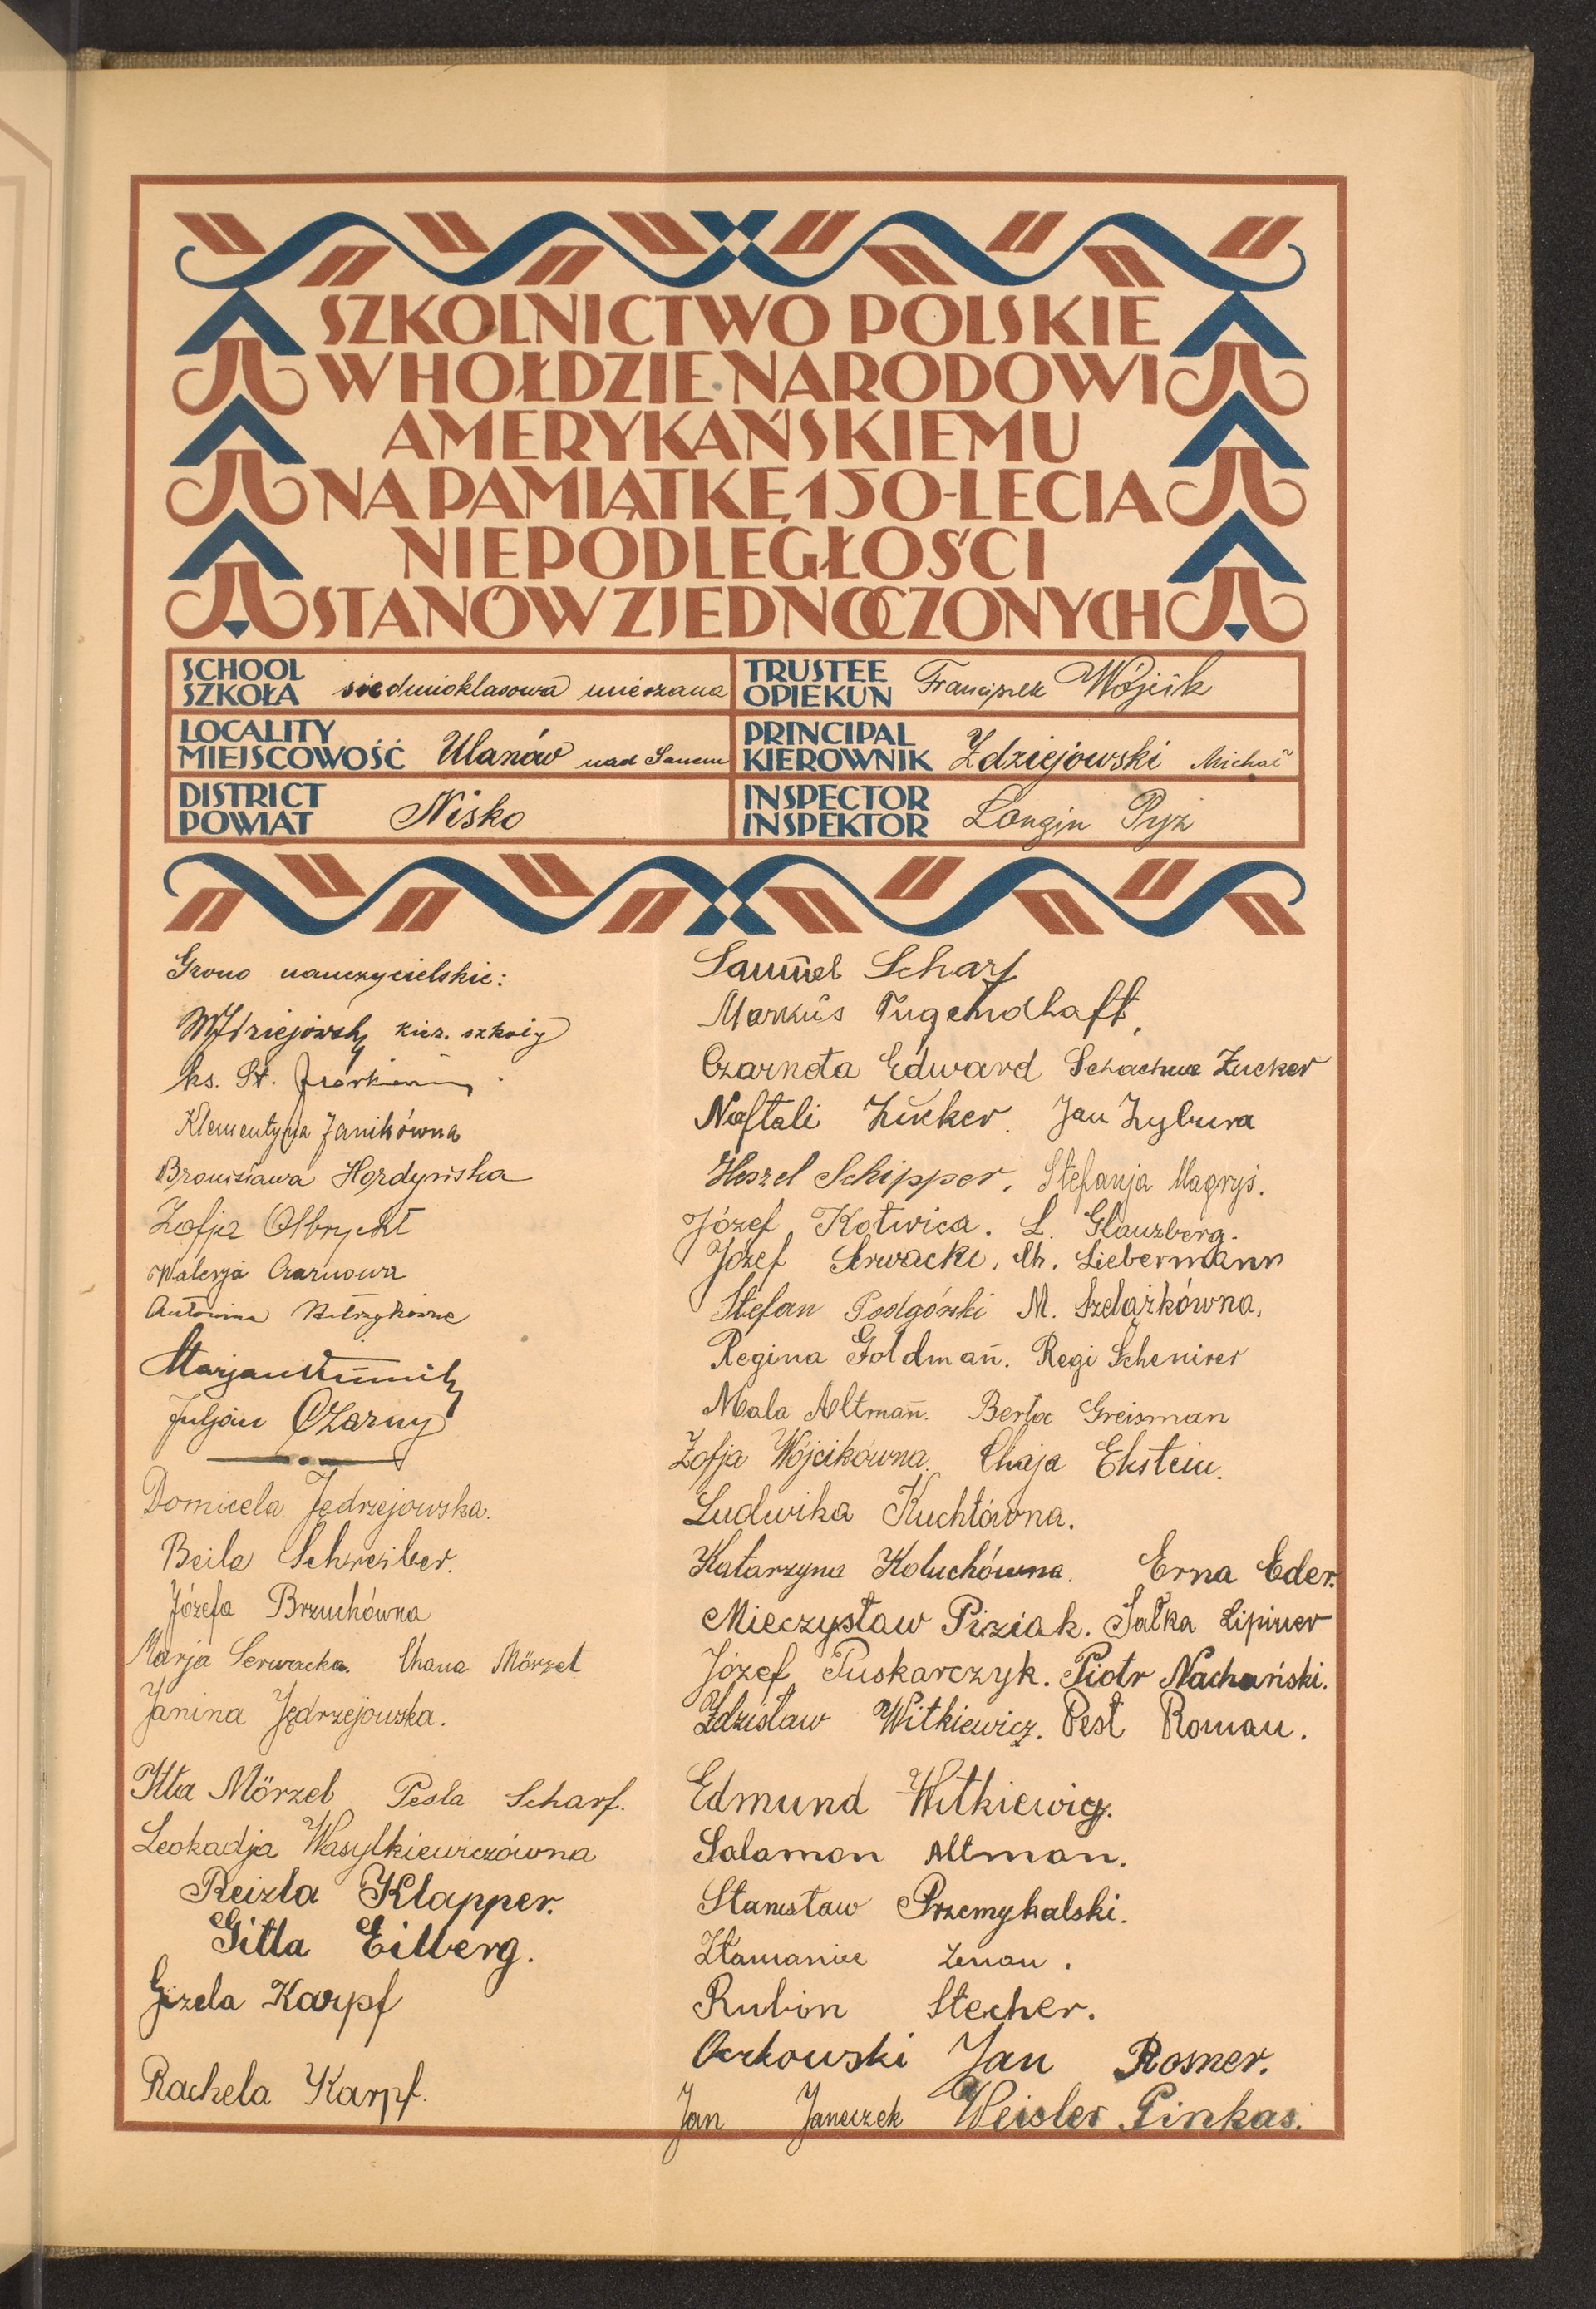 SZKOLNICTWO POLSKIE
W HOŁDZIE NARODOWI
AMERYKAŃSKIEMU
NA PAMIĄTKĘ 150-LECIA
NIEPODLEGŁOŚCI
STANÓW ZJEDNOCZONYCH
SCHOOL
SZKOŁA siedmioklasowa mieszana
TRUSTEE
OPIEKUN Franciszek Wójcik
LOCALITY
MIEJSCOWOŚĆ Ulanów nad Sanem
PRINCIPAL
KIEROWNIK Zdziejowski Michał
DISTRICT
POWIAT Nisko
INSPECTOR
INSPEKTOR Longin Pyż
Grono nauczycielskie:
MZdziejowski kier. szkoły
ks. St.
Klementyna Janikówna
Bronisława Hordyńska
Zofja Olbrycht
Walerja Czarnowa
Antonina
Marjan
Juljan Czarny
Domicela Jędrzejowska.
Beila Schreiber.
Józefa Brzuchówna
Marja Serwacka. Chana Mörzel
Janina Jędrzejowska.
Itta Mörzel Pesla Scharf.
Leokadja Wasylkiewiczówna
Reizla Klapper.
Gitla Eilberg.
Gizela Karpf
Rachela Karpf.
Samuel Scharf
Markus Tugendhaft,
Czarnota Edward Schachne Zucker
Naftali Zucker. Jan Zybura
Heszel Schipper. Stefanja Magryś.
Józef Kotwica. L. Glanzberg.
Józef Serwacki, Ch. Liebermann
Stefan Podgórski M. Szelążkówna,
Regina Goldman̄. Regi Schenirer
Mala Altman̄. Berta Greisman
Zofja Wójcikówna. Chaja Ekstein.
Ludwika Kuchtówna.
Katarzyna Kołuchówna. Erna Eder.
Mieczysław Piziak. Salka Lipiner
Józef Puskarczyk. Piotr Nachański.
Zdzisław Witkiewicz. Pest Roman.
Edmund Witkiewicz.
Salamon Altman.
Stanisław Przemykalski.
Złamaniec Zenon.
Rubin Stecher.
Ockowski Jan Rosner.
Jan Janeczek Weisler Pinkas.